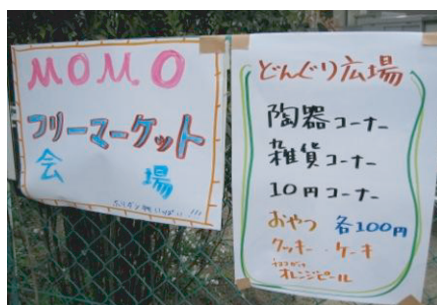 MOMO
フリーマーケット
会場
どんぐり広場
陶器コーナー
雑貨コーナー
10円コーナー
おやつ 各100円
クッキー・ケーキ
オレンジピール